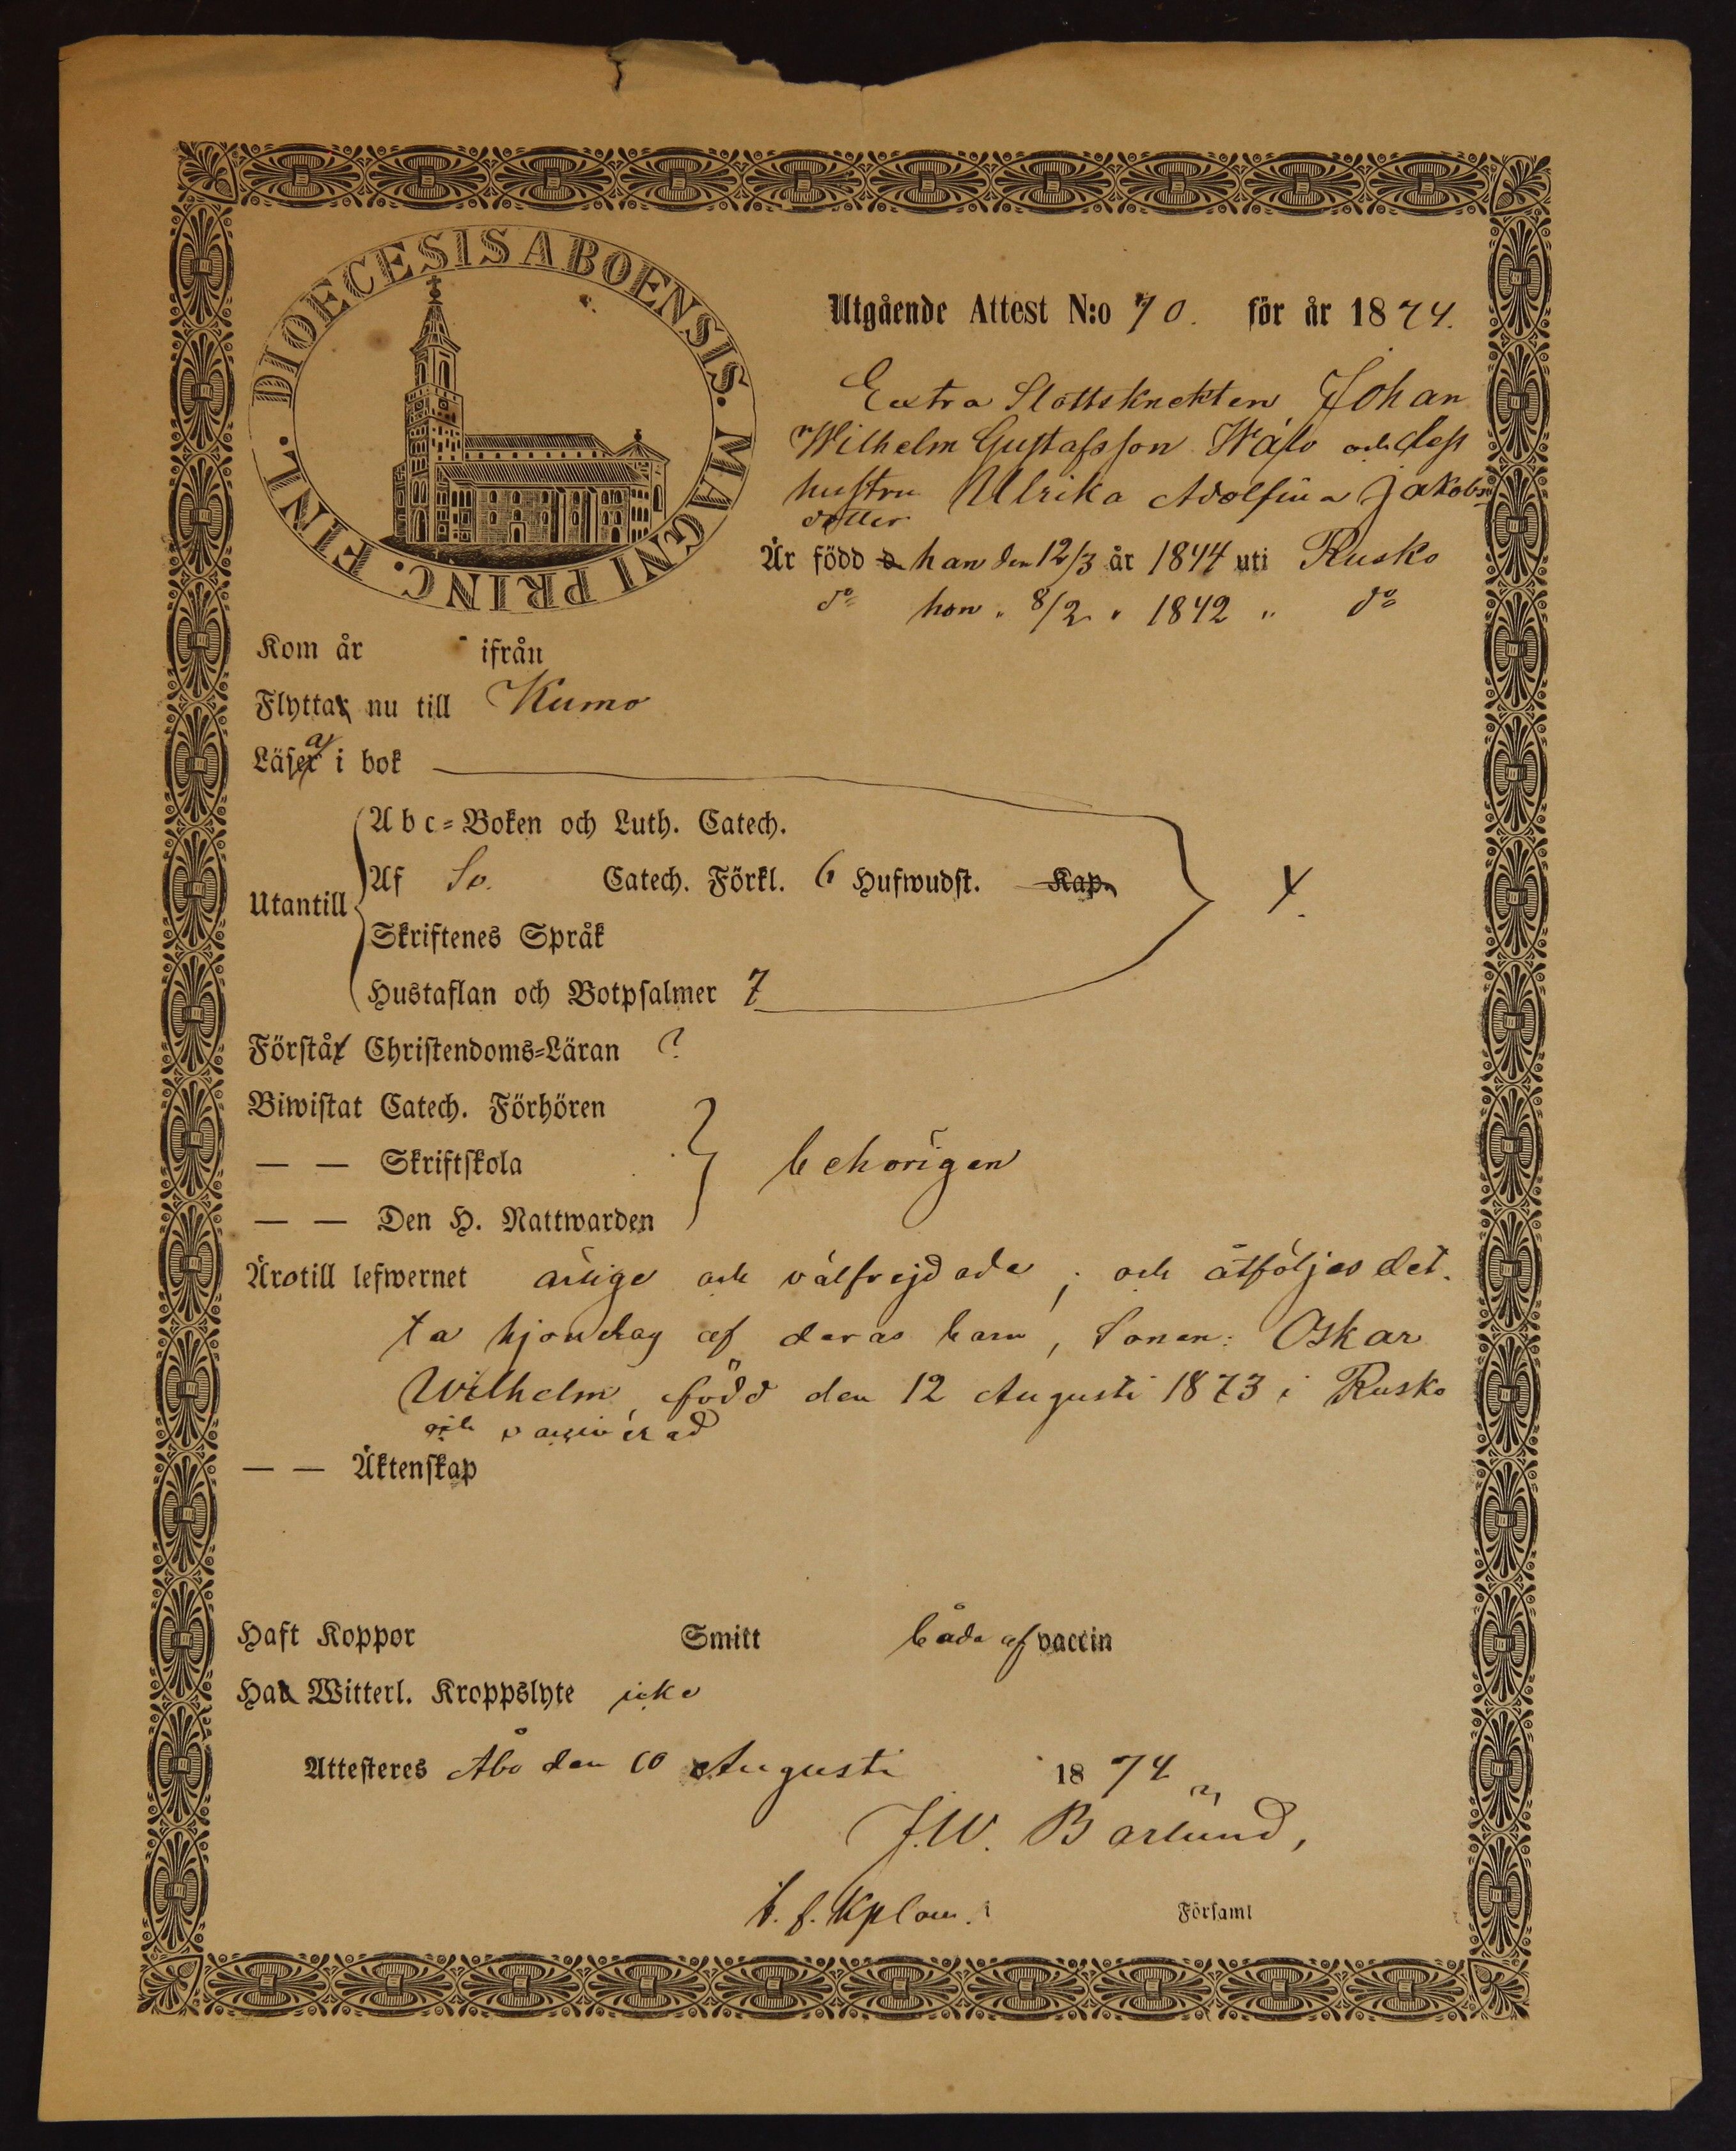 DIOECESIS ABOENSIS. MAGNI PRINC. FINL.
Utgående Attest N:o 70. för år 1874.
Extra Slottsknekten Johan
Wilhelm Gustafsson och dess
hustru Ulrika Adolfina Jakobs
dotter
Är född han den 12/3 år 1844 uti Rusko
d:o hon " 8/2 " 1842 " d:o
Kom år ifrån
Flytta nu till Kumo
Läsa i bok
Abc=Boken och Luth. Catech.
Utantill
Af Sv. Catech. Förkl. 6 Hufwudst. Kap.
Skriftenes Språk
Hustaflan och Botpsalmer 7
Förstå Christendoms=Läran ?
Biwistat Catech. Förhören
— — Skriftskola behörigen
— — Den H. Nattwarden
Äro till lefwernet ärlige och välfrejdade; och åtföljes det
ta hjonelag af deras barn, Sonen: Oskar
Wilhelm, född den 12 Augusti 1873 i Rusko
och vaccinerad
— — Äktenskap
Haft Koppor Smitt båda af vaccin
Ha Witterl. Kroppslyte icke
Attesteres Åbo den 10 Augusti 1874
J.W. Barlund,
Kplan. i Församl